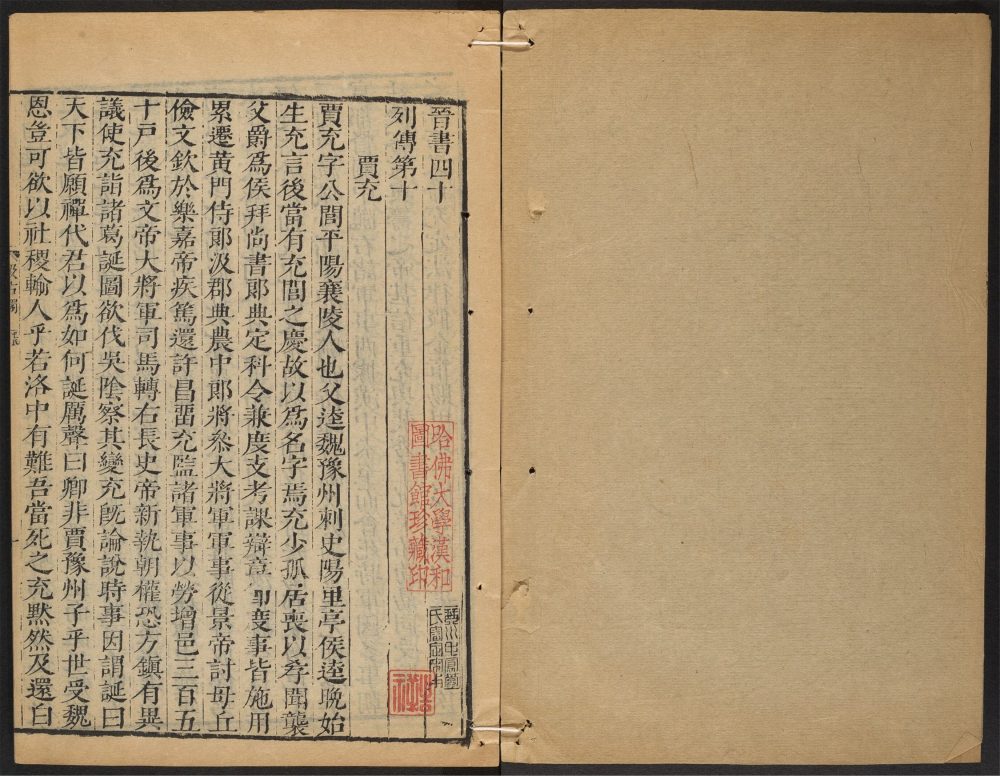 晉書四十
列傳第十
賈充
賈充字公閭平陽襄陵人也父逵魏豫州刺史陽里亭侯逵晚始
生充言後當有充閭之慶故以爲名字焉充少孤居喪以孝聞襲
父爵爲侯拜尚書郎典定科令兼度支考課辯章卽度事皆施用
累遷黃門侍郎汲郡典農中郎將叅大將軍軍事從景帝討毋丘
儉文欽於樂嘉帝疾篤還許昌畱充監諸軍事以勞增邑三百五
十戸後爲文帝大將軍司馬轉右長史帝新執朝權恐方鎮有異
議使充詣諸葛誕圖欲伐吳陰察其變充旣論說時事因謂誕曰
天下皆願禪代君以爲如何誕厲聲曰卿非賈豫州子乎世受魏
恩豈可欲以社稷輸人乎若洛中有難吾當死之充默然及還白
哈佛大學漢和
圖書館珍藏印